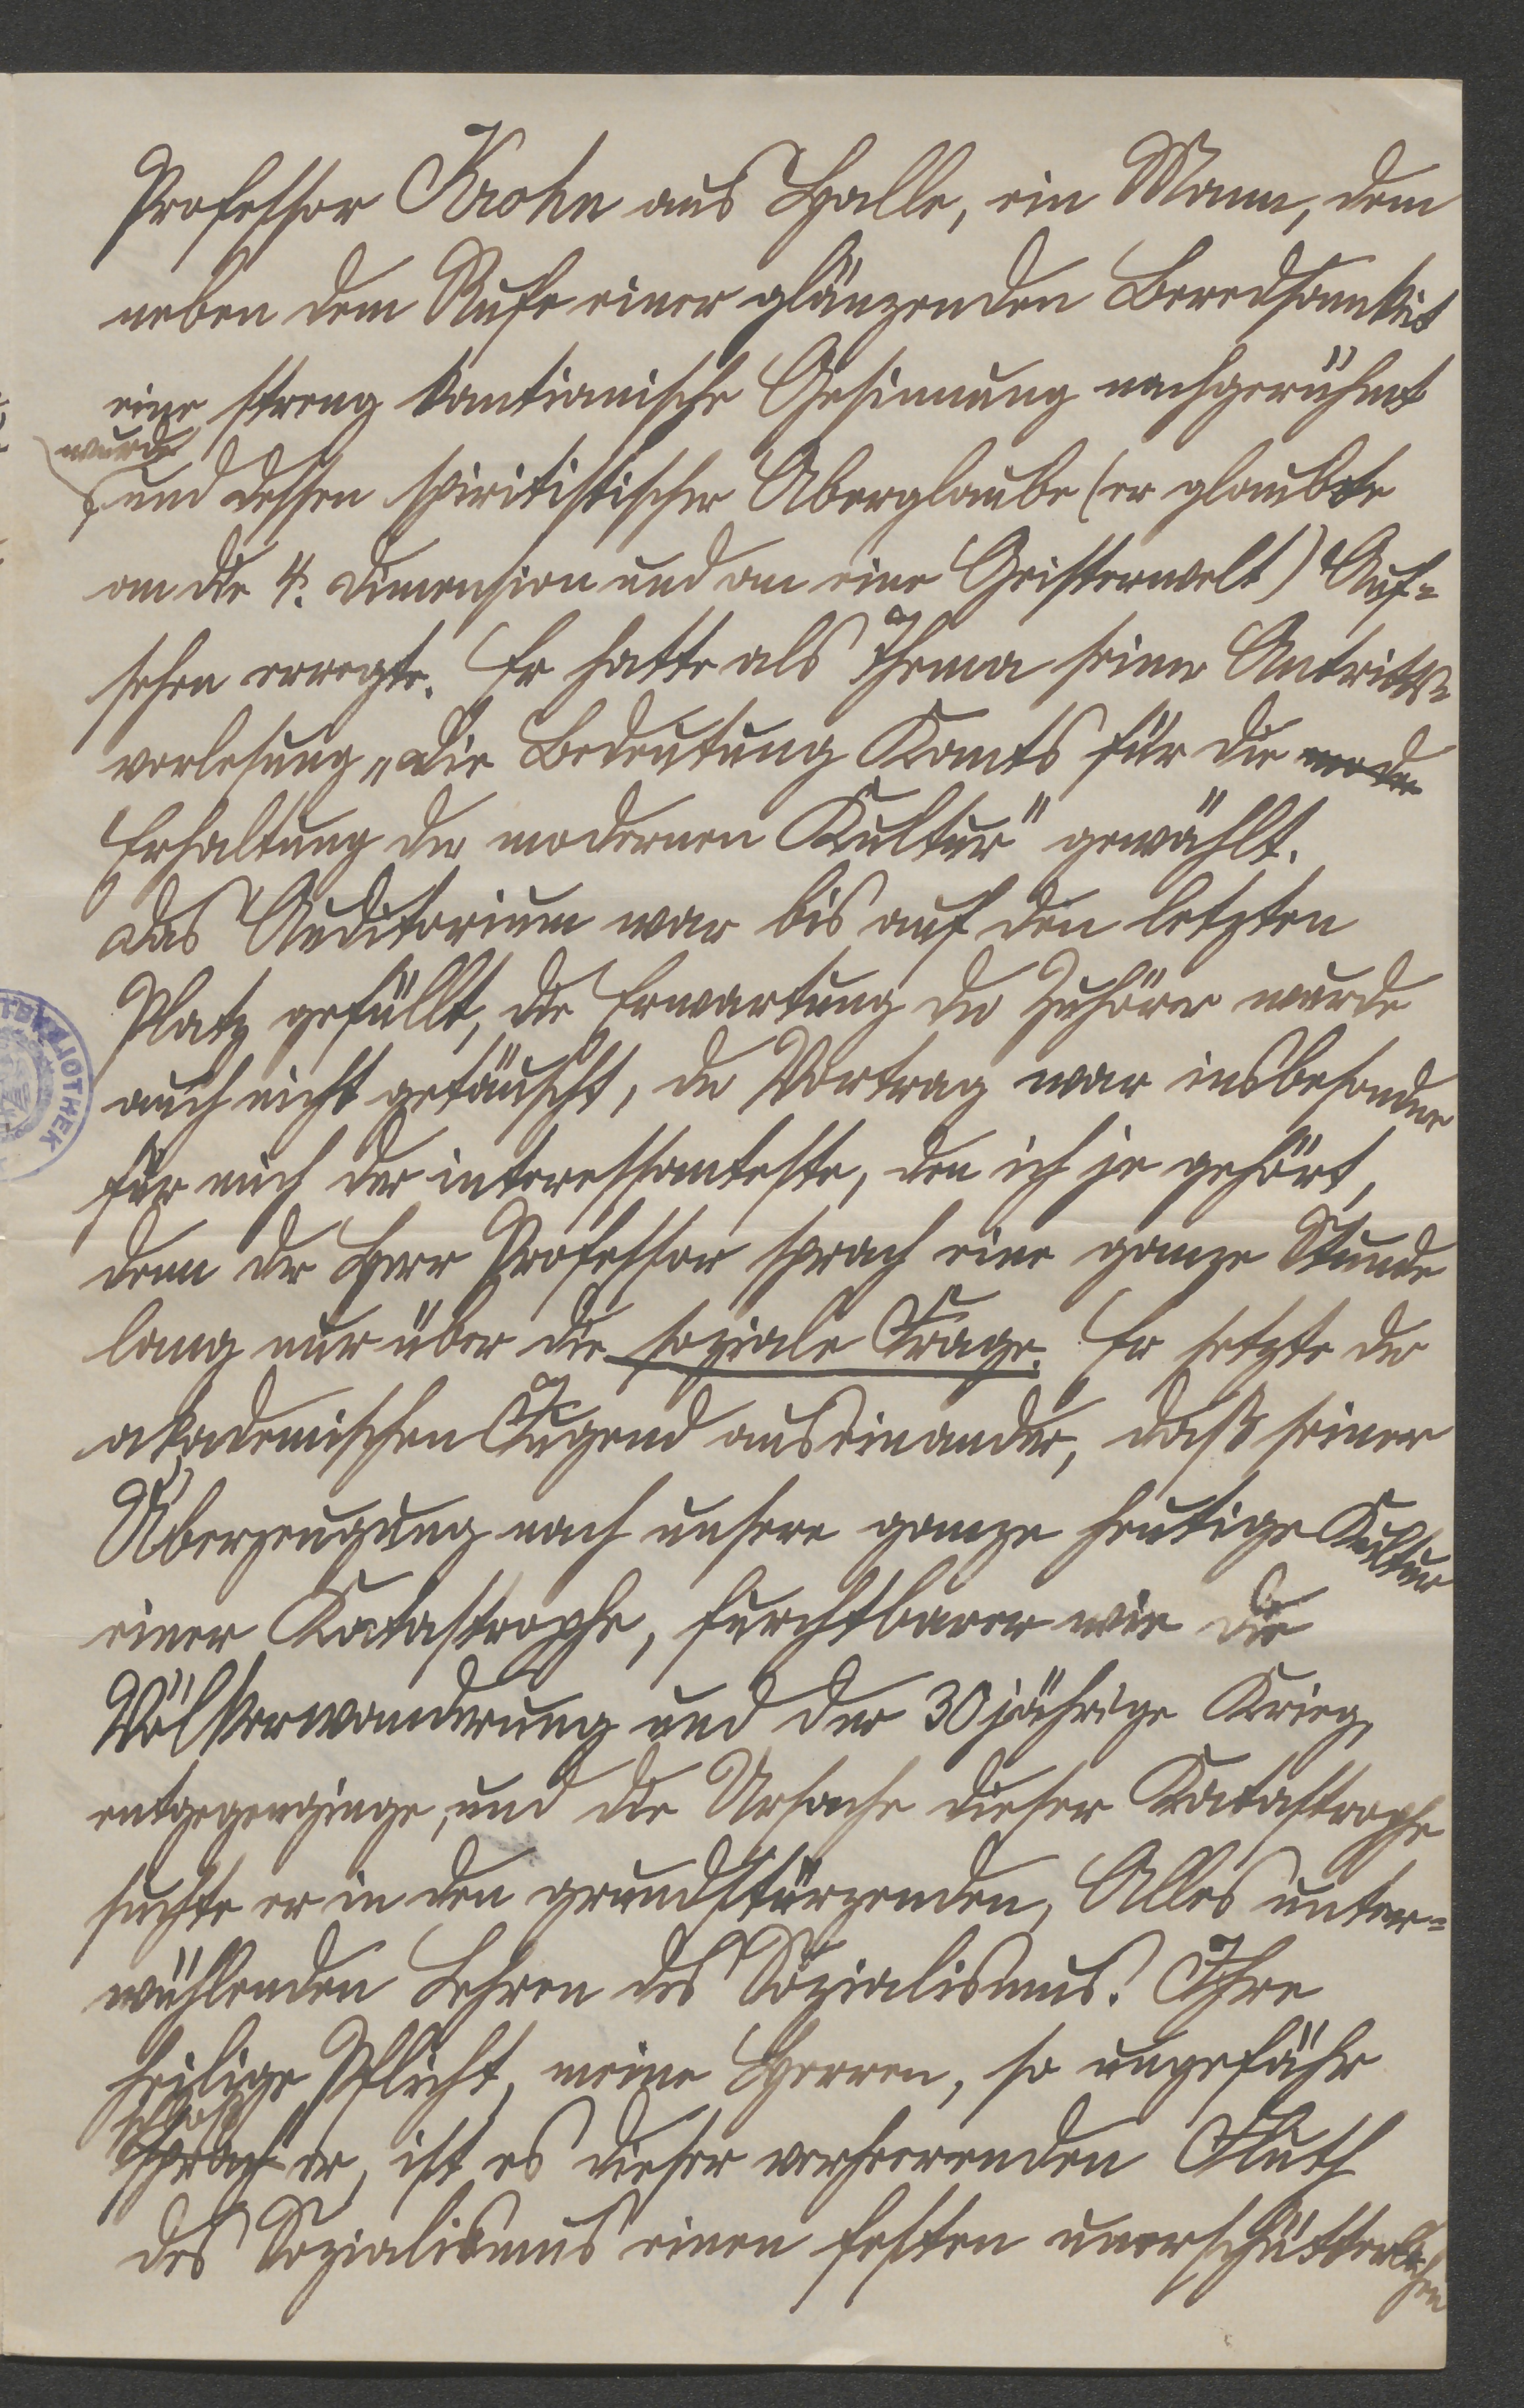 Professor Krohn aus Halle, ein Mann, dem
neben dem Rufe einer glänzenden Beredsamkeit
eine streng kantianische Gesinnung nachgerühmt
wurde
und dessen spiritistischer Aberglaube (er glaubte
an die 4. Dimension und an eine Geisterwelt) Auf=
sehen erregte. Er hatte als Thema seiner Antritts=
vorlesung „Die Bedeutung Kants für die moder
Erhaltung der modernen Kultur" gewählt.
Das Auditorium war bis auf den letzten
Platz gefüllt, die Erwartung der Zuhörer wurde
auch nicht getäuscht, der Vortrag war insbesondere
für mich der interessanteste, den ich je gehört,
denn der Herr Professor sprach eine ganze Stunde
lang nur über die soziale Frage. Er setzte der
akademischen Jugend auseinander, daß seiner
Überzeugung nach unsere ganze heutige Kultur
einer Katastrophe, furchtbarer wie die
Völkerwanderung und der 30jährige Krieg,
entgegenginge, und die Ursache dieser Katastrophe
suchte er in den grundstürzenden, Alles unter=
wühlenden Lehren des Sozialismus. Ihre
heilige Pflicht, meine Herren, so ungefähr
schloß
sprach er, ist es dieser verheerenden Fluth
des Sozialismus einen festen unerschütterlichen
BIBLIOTHEK